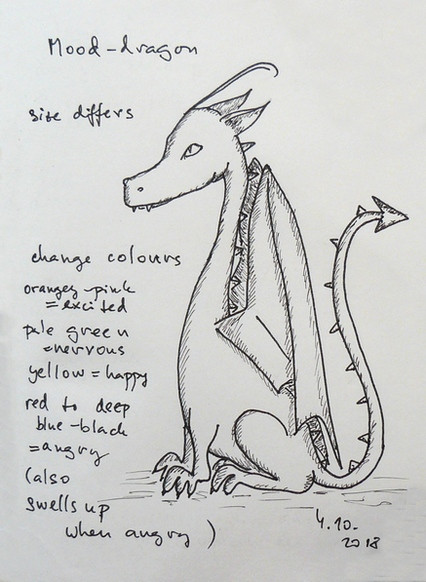 Mood-dragon
size differs
change colours
orangey-pink
= excited
pale green
= nervous
yellow = happy
red to deep
blue-black
= angry
(also
swells up
when angry )
4.10.
2018